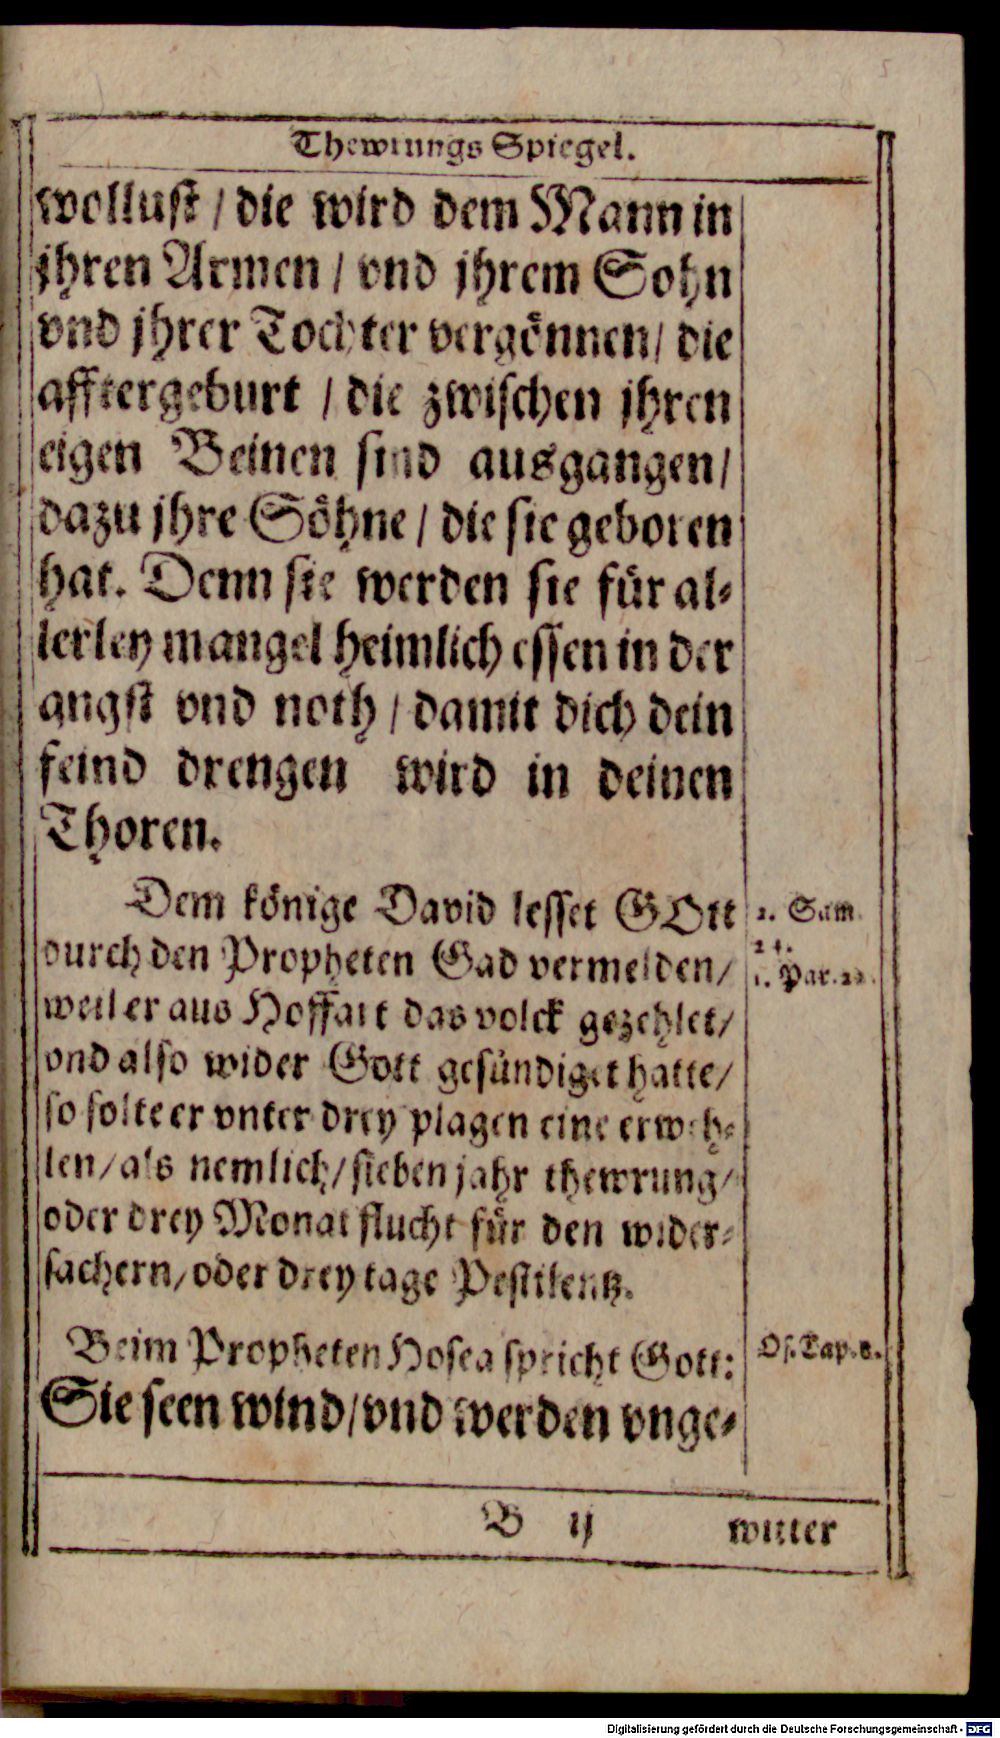 Thewrungs Spiegel.
wollust / die wird dem Mann in
jhren Armen / vnd jhrem Sohn
vnd jhrer Tochter vergönnen / die
afftergeburt / die zwischen jhren
eigen Beinen sind ausgangen /
dazu jhre Söhne / die sie geboren
hat. Denn sie werden sie für al-
lerley mangel heimlich essen in der
angst vnd noth / damit dich dein
feind drengen wird in deinen
Thoren.
Dem könige David lesset GOtt
durch den Propheten Gad vermelden /
weil er aus Hoffart das volck gezehlet /
vnd also wider Gott gesündiget hatte /
so solte er vnter drey plagen eine erweh-
len / als nemlich / sieben jahr thewrung /
oder drey Monat flucht für den wider-
sachern / oder drey tage Pestilentz.
2. Sam.
24.
1. Par. 22.
Beim Propheten Hosea spricht Gott:
Os. Cap. 8.
Sie seen wind / vnd werden vnge-
B ij witter
Digitalisierung gefördert durch die Deutsche Forschungsgemeinschaft - DFG